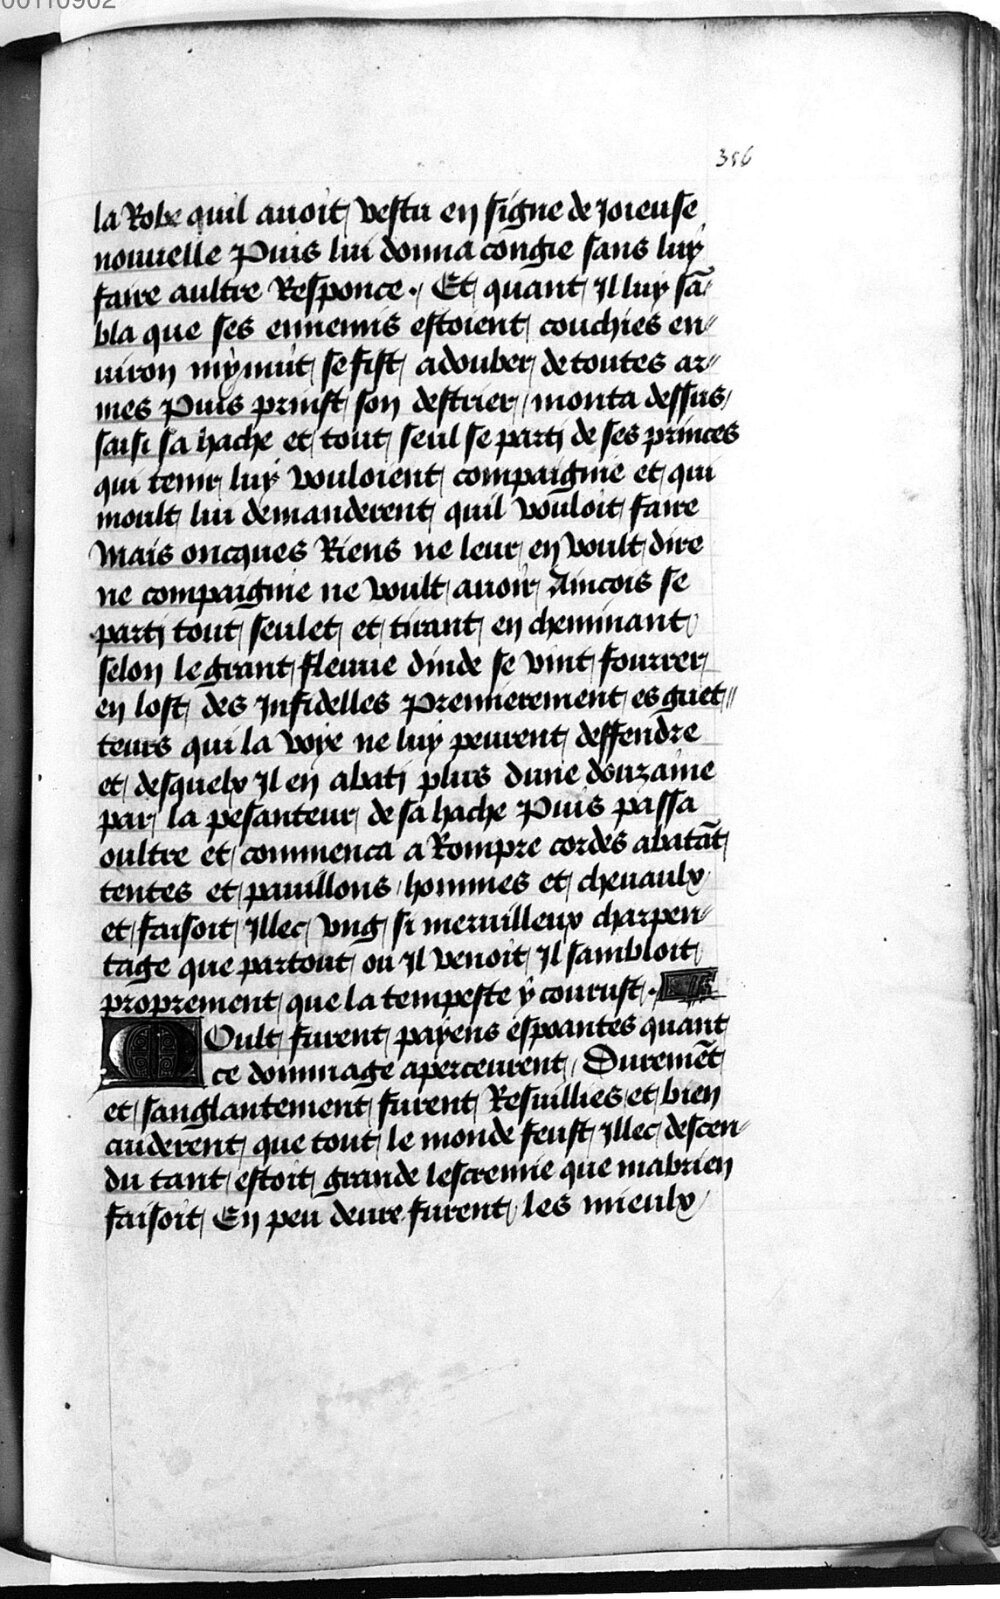 00110902
356
la Robe quil auoit vestu en signe de Joieuse
nouuelle Puis lui donna congie sans luy
faire aultre Responce. Et quant Il luy sā
bla que ses ennemis estoient couchies en-
uiron mynuit se fist adouber de toutes ar-
mes Puis prinst son destrier monta dessus
saisi sa hache et tout seul se parti de ses princes
qui tenir luy vouloient compaignie et qui
moult lui demanderent quil vouloit faire
Mais oncques Riens ne leur en voult dire
ne compaignie ne voult auoir Aincois se
parti tout seulet et tirant en cheminant
selon le grant fleuue dinde se vint fourrer
en lost des Infidelles Premierement es guet-
teurs qui la voye ne luy peurent deffendre
et desquelx Il en abati plus dune douzaine
par la pesanteur de sa hache Puis passa
oultre et commenca a Rompre cordes abatāt
tentes et pauillons hommes et cheuaulx
et faisoit Illec vng si merueilleux charpen-
tage que partout ou Il venoit Il sambloit
proprement que la tempeste y courust.
Moult furent payens espoantes quant
ce dommage aperceurent Duremēt
et sanglantement furent Resuillies et bien
cuiderent que tout le monde feust Illec descen-
du tant estoit grande lescremie que mabrien
faisoit En peu deure furent les mieulx